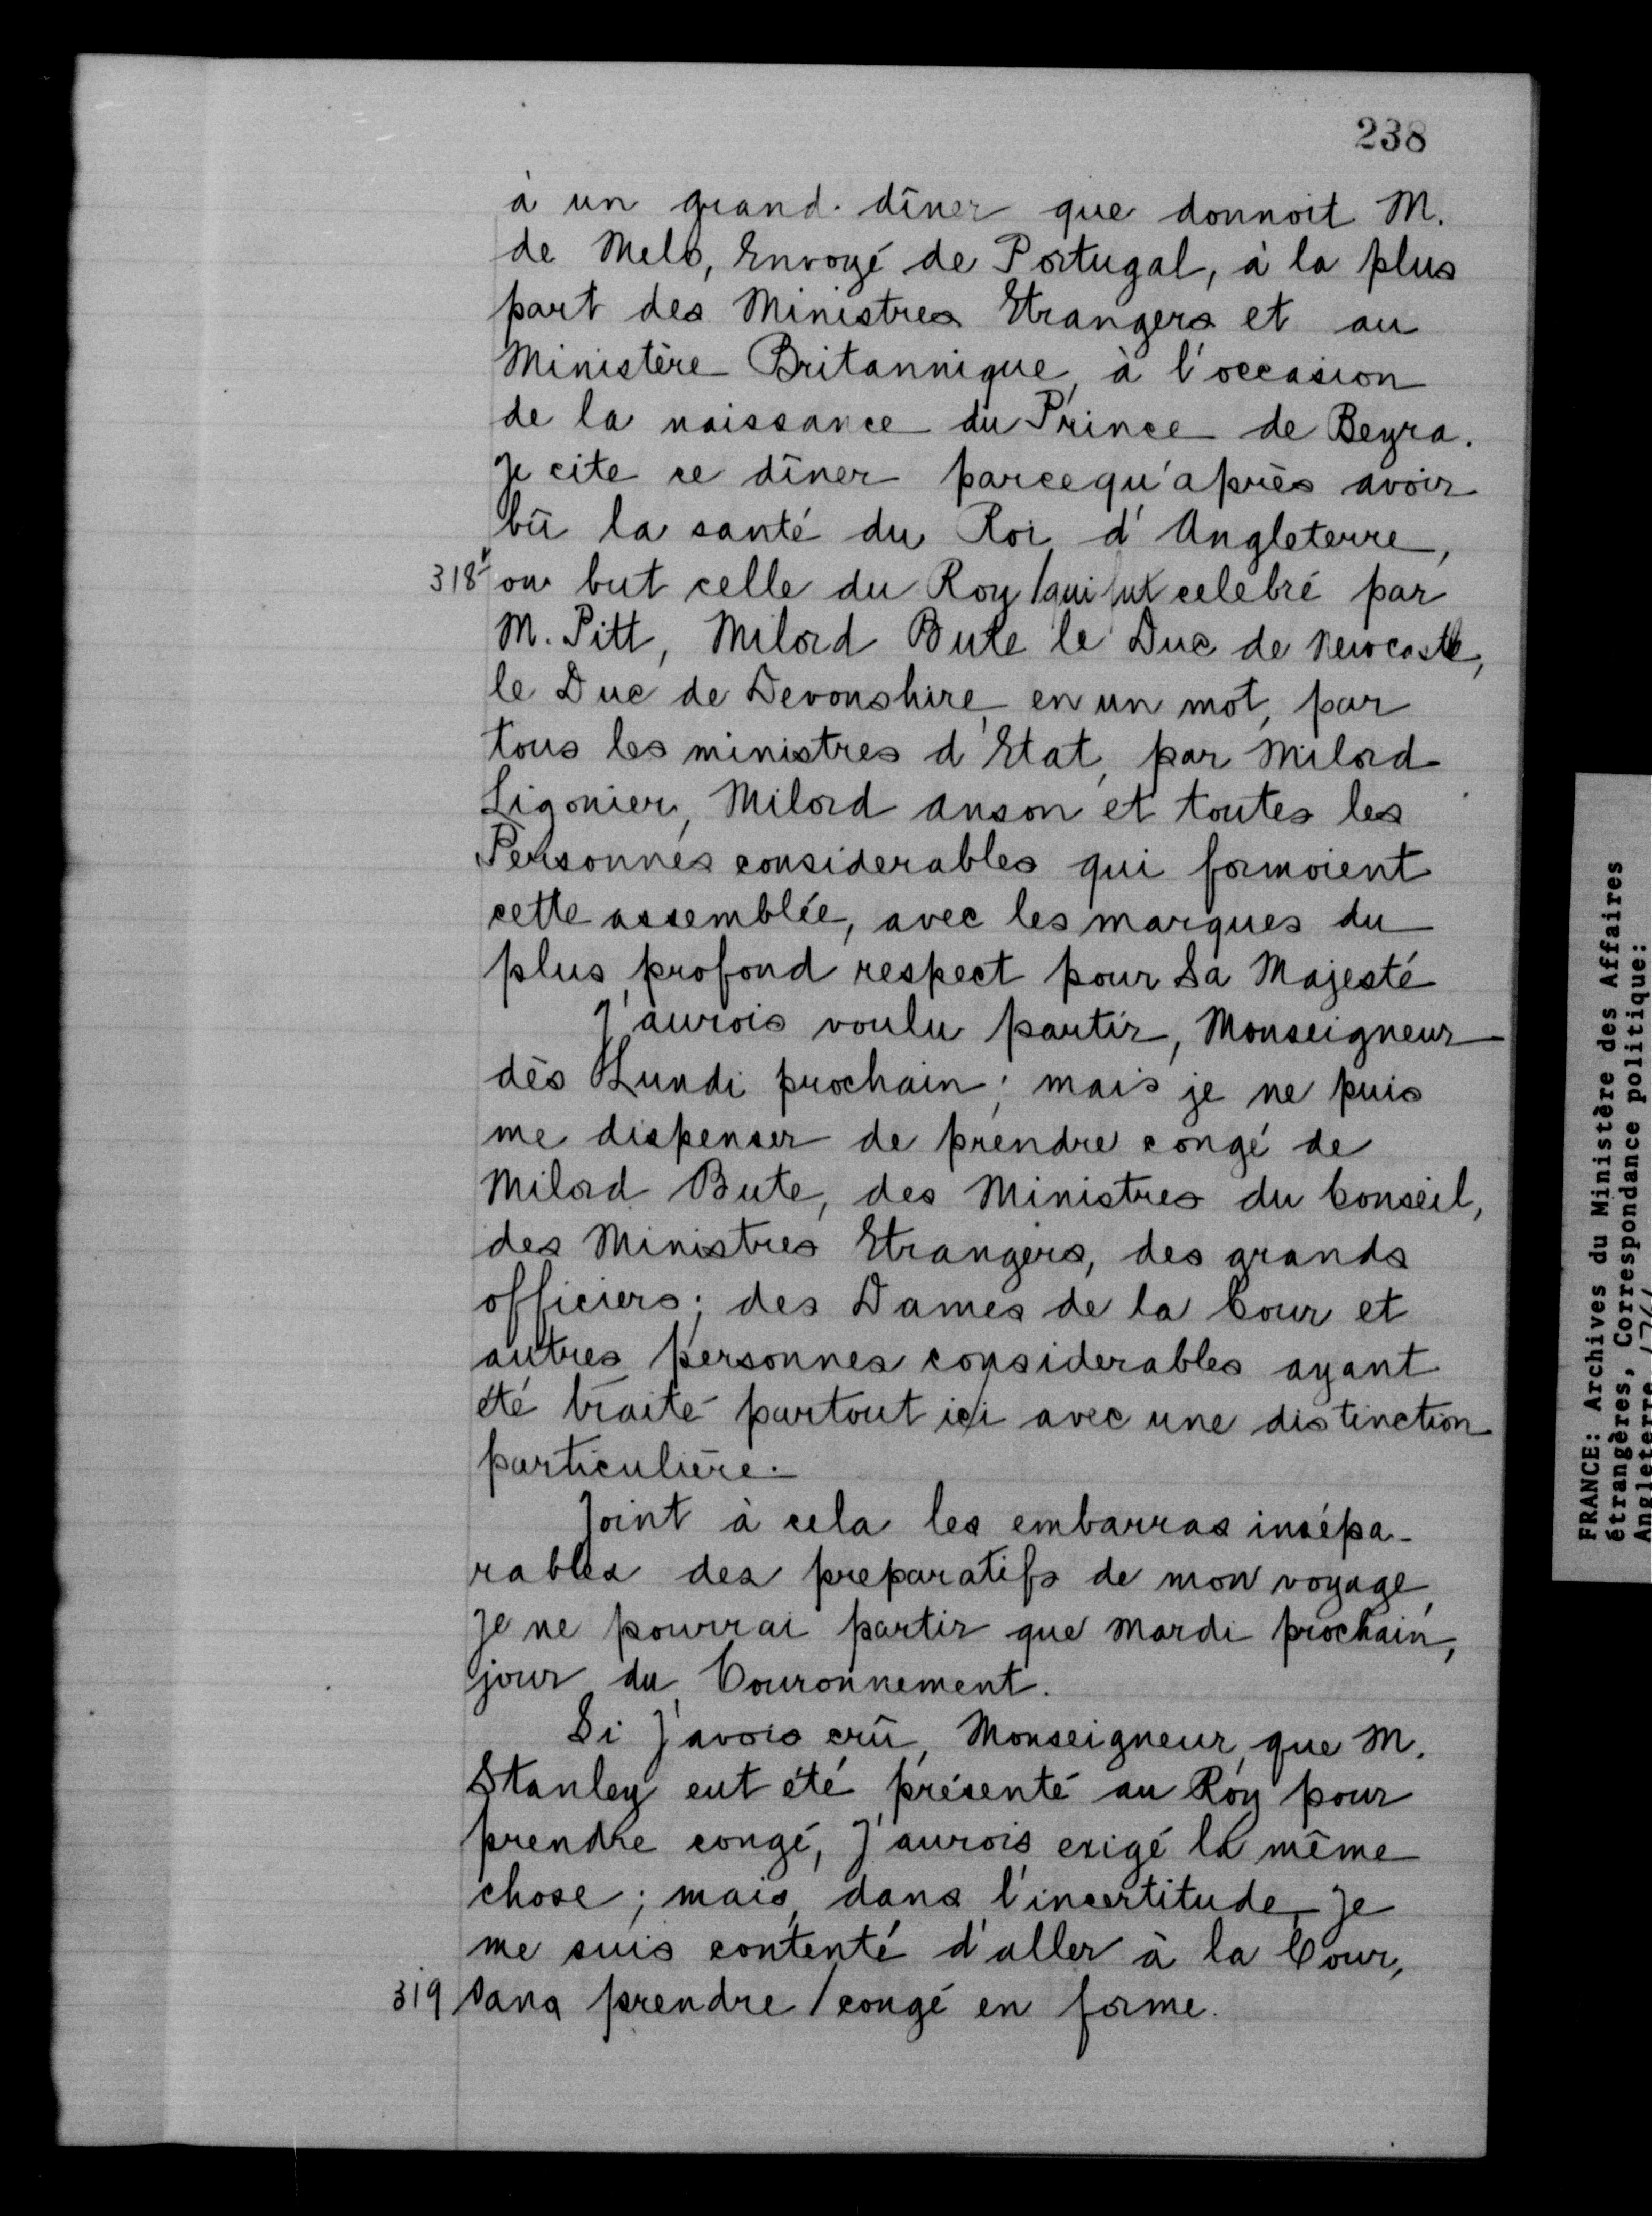 238
à un grand dîner que donnoit M.
de Melo, Envoyé de Portugal, à la plus
part des Ministres Etrangers et au
Ministère Britannique, à l'occasion
de la naissance du Prince de Beyra.
Je cite ce dîner parcequ'après avoir
bû la santé du Roi d'Angleterre,
318v on but celle du Roy / qui fut celebré par
M. Pitt, Milord Bute le Duc de Newcastle,
le Duc de Devonshire, en un mot, par
tous les ministres d'Etat, par Milord
Ligonier, Milord Anson et toutes les
Personnes considerables qui formoient
cette assemblée, avec les marques du
plus profond respect pour Sa Majesté
J'aurois voulu partir, Monseigneur
dès Lundi prochain; mais je ne puis
me dispenser de prendre congé de
Milord Bute, des Ministres du Conseil,
des Ministres Etrangers, des grands
officiers; des Dames de la Cour et
autres personnes considerables ayant
été traité partout ici avec une distinction
particulière.
Joint à cela les embarras insépa-
rables des preparatifs de mon voyage,
Je ne pourrai partir que Mardi prochain,
jour du Couronnement.
Si J'avois crû, Monseigneur, que M.
Stanley eut été présenté au Roy pour
prendre congé, J'aurois exigé la même
chose; mais, dans l'incertitude, Je
me suis contenté d'aller à la Cour,
319 sans prendre / congé en forme.
FRANCE: Archives du Ministère des Affaires
étrangères, Correspondance politique:
Angleterre